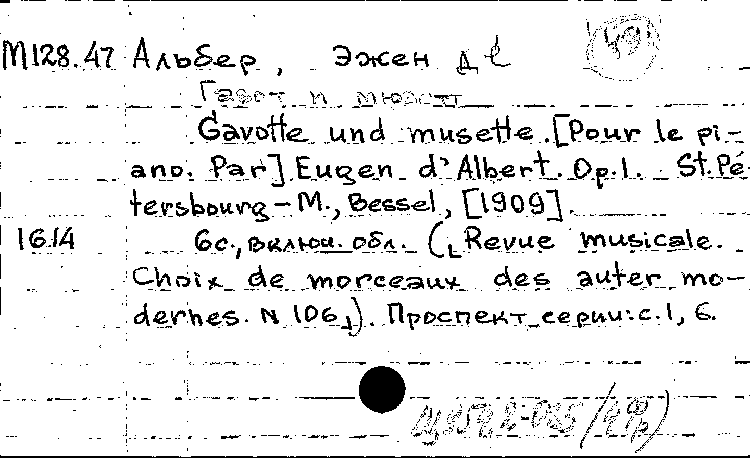 М128.47 Альбер, Эжен д'
Гавот и мюзетт
Gavotte und musette. [Pour le pi-
ano. Par] Eugen d'Albert. Op.1. St.Pé-
tersbourg - M., Bessel, [1909].
1614 6с., включ. обл. (Revue musicale.
Choix de morceaux des auter mo-
dernes. N 106). Проспект серии: с.1, 6.